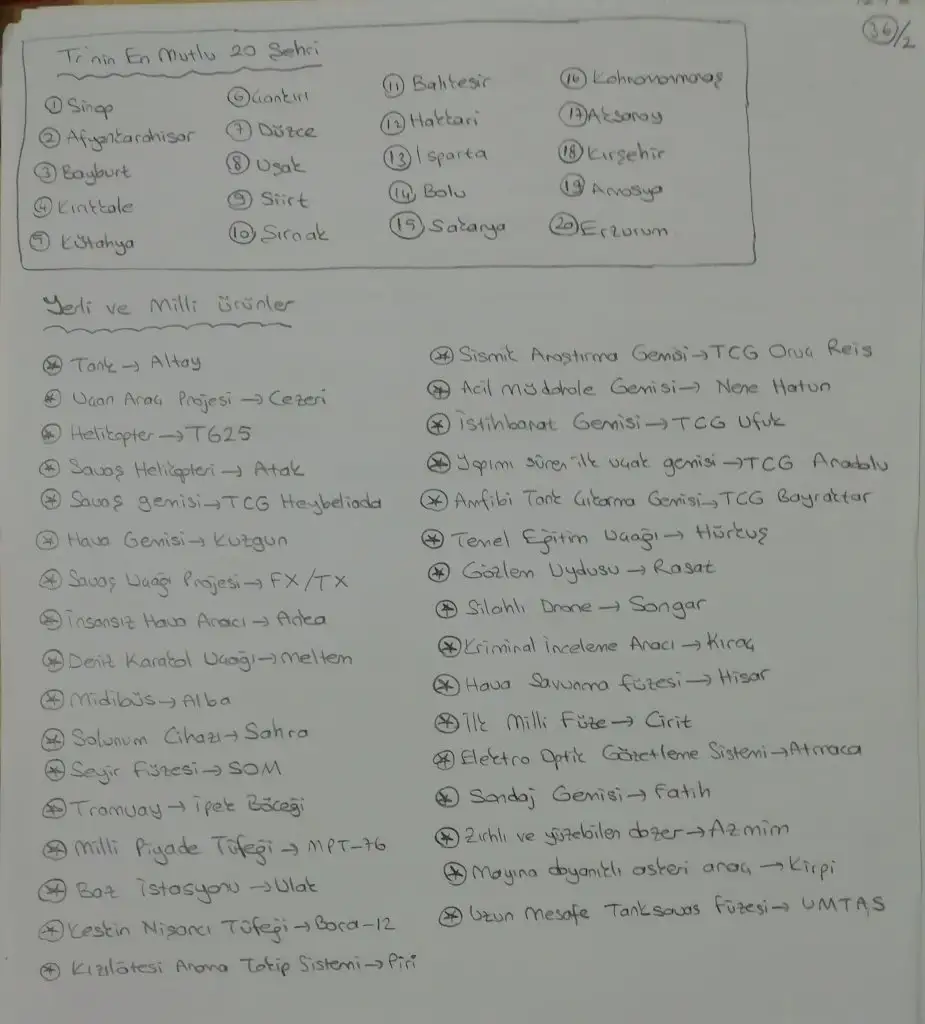 36/2
Tr'nin En Mutlu 20 Şehri
① Sinop
② Afyonkarahisar
③ Bayburt
④ Kırıkkale
⑤ Kütahya
⑥ Çankırı
⑦ Düzce
⑧ Uşak
⑨ Siirt
⑩ Şırnak
⑪ Balıkesir
⑫ Hakkari
⑬ Isparta
⑭ Bolu
⑮ Sakarya
⑯ Kahramanmaraş
⑰ Aksaray
⑱ Kırşehir
⑲ Amasya
⑳ Erzurum
Yerli ve Milli Ürünler
⊛ Tank → Altay
⊛ Uçan Araç Projesi → Cezeri
⊛ Helikopter → T625
⊛ Savaş Helikopteri → Atak
⊛ Savaş gemisi → TCG Heybeliada
⊛ Hava Gemisi → Kuzgun
⊛ Savaş Uçağı Projesi → FX/TX
⊛ İnsansız Hava Aracı → Anka
⊛ Deniz Karakol Uçağı → Meltem
⊛ Midibüs → Alba
⊛ Solunum Cihazı → Sahra
⊛ Seyir Füzesi → SOM
⊛ Tramvay → İpek Böceği
⊛ Milli Piyade Tüfeği → MPT-76
⊛ Baz İstasyonu → Ulak
⊛ Keskin Nişancı Tüfeği → Bora-12
⊛ Kızılötesi Arama Takip Sistemi → Piri
⊛ Sismik Araştırma Gemisi → TCG Oruç Reis
⊛ Acil Müdahale Gemisi → Nene Hatun
⊛ İstihbarat Gemisi → TCG Ufuk
⊛ Yapımı süren ilk uçak gemisi → TCG Anadolu
⊛ Amfibi Tank Çıkarma Gemisi → TCG Bayraktar
⊛ Temel Eğitim Uçağı → Hürkuş
⊛ Gözlem Uydusu → Rasat
⊛ Silahlı Drone → Songar
⊛ Kriminal İnceleme Aracı → Kıraç
⊛ Hava Savunma füzesi → Hisar
⊛ İlk Milli Füze → Cirit
⊛ Elektro Optik Gözetleme Sistemi → Atmaca
⊛ Sondaj Gemisi → Fatih
⊛ Zırhlı ve yüzebilen dozer → Azmim
⊛ Mayına dayanıklı askeri araç → Kirpi
⊛ Uzun Mesafe Tanksavas Füzesi → UMTAS